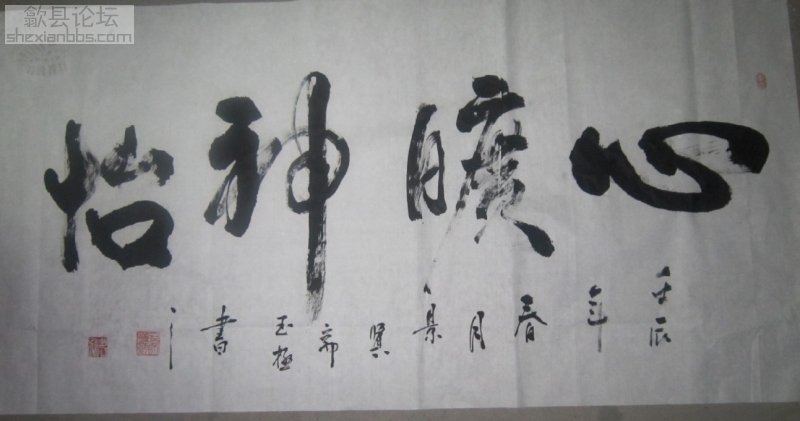 歙县论坛
shexianbbs.com
心曠神怡
壬辰年春月
書